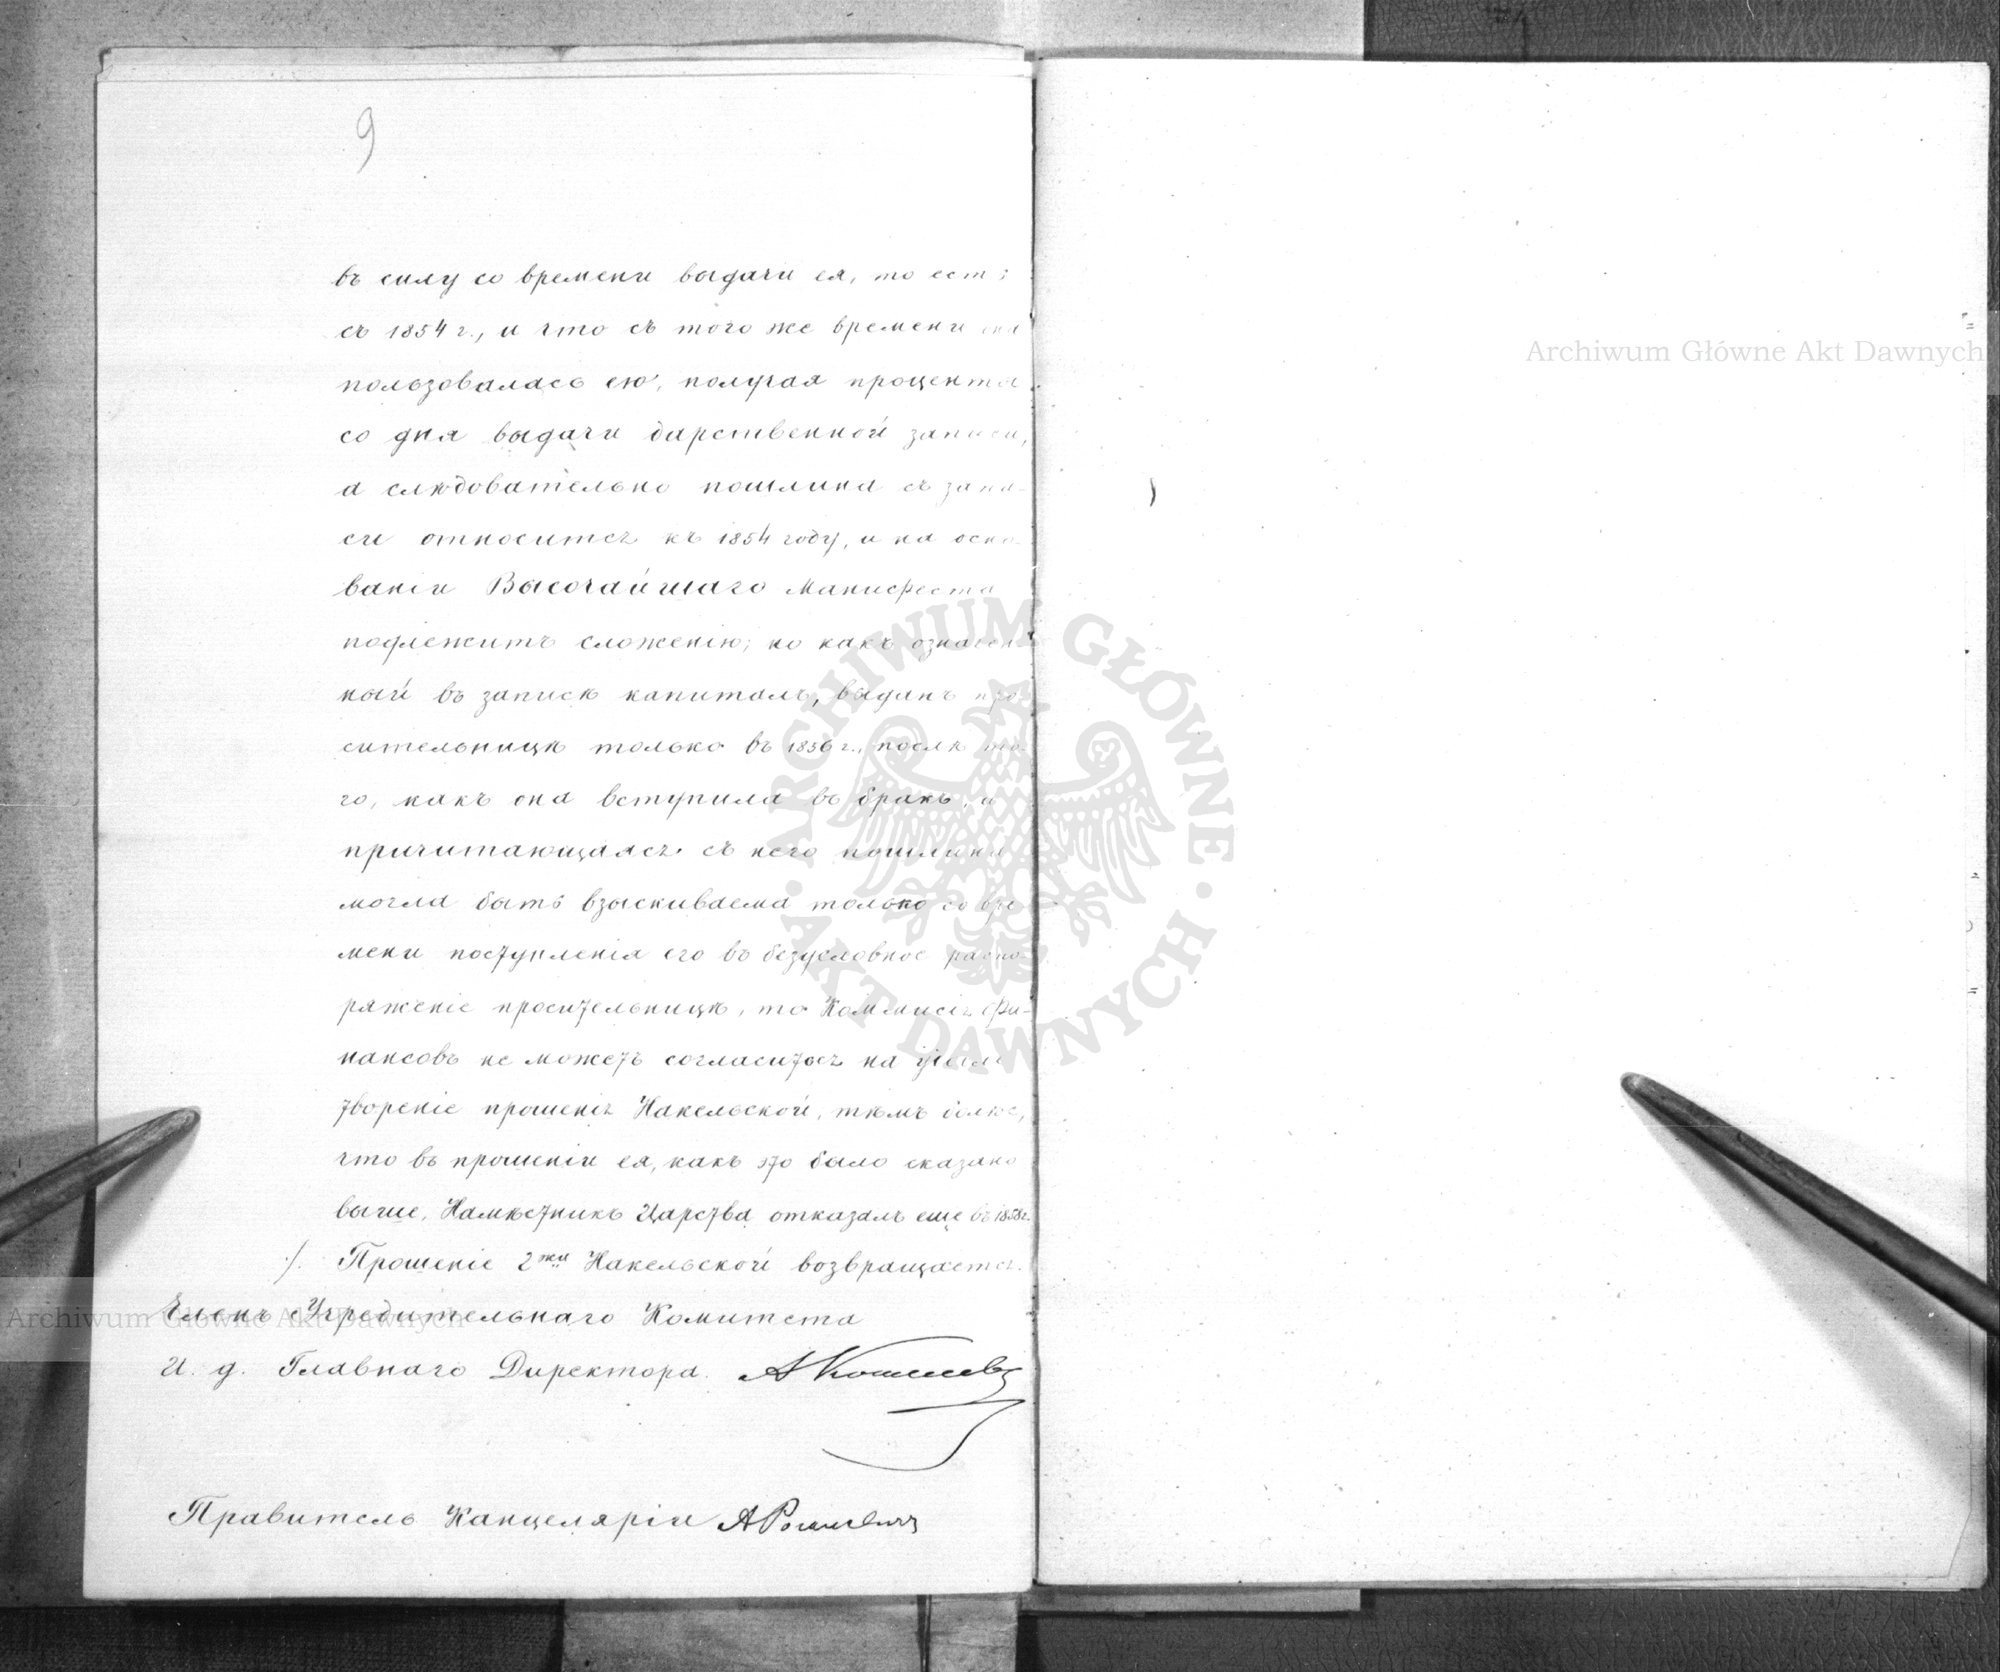 9
въ силу со времени выдачи ея, то есть
съ 1854 г., и что съ того же времени она
пользовалась ею, получая проценты
со дня выдачи дарственной записи,
а слѣдовательно пошлина съ запи-
си относится къ 1854 году, и на осно-
ваніи Высочайшаго Манифеста
подлежитъ сложенію; но какъ означен-
ный въ запискѣ капиталъ, выданъ про-
сительницѣ только въ 1856 г., послѣ то-
го, какъ она вступила въ бракъ, и
причитающаяся съ него пошлина
могла быть взыскиваема только со вре-
мени поступленія его въ безусловное распо-
ряженіе просительницѣ, то Коммисія Фи-
нансовъ не можетъ согласиться на удовле-
твореніе прошенія Накельской, тѣмъ болѣе,
что въ прошеніи ея, какъ это было сказано
выше, Намѣстникъ Царства отказалъ еще въ 1858 г.
./. Прошеніе Г-жи Накельской возвращается.
Членъ Учредительнаго Комитета
И. д. Главнаго Директора. А Кошелевъ
Правитель Канцеляріи А
Archiwum Główne Akt Dawnych
Archiwum Główne Akt Dawnych
ARCHIWUM GŁÓWNE AKT DAWNYCH